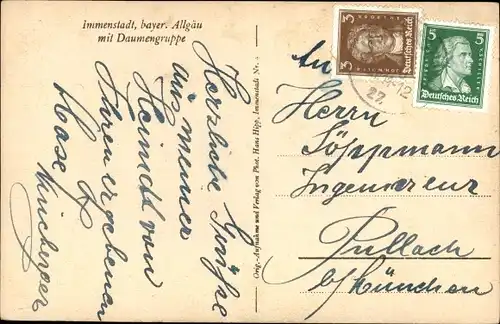 Immenstadt, bayer. Allgäu
mit Daumengruppe
Herzliche Grüße
aus meiner
Heimat von
Ihrem ergebenen
Orig.-Aufnahme und Verlag von Phot. Hans Hipp, Immenstadt Nr.
3
3
Deutsches Reich
5
5
Deutsches Reich
27.
-12
An
Herrn
Söppmann
Ingenieur
Pullach
b/München